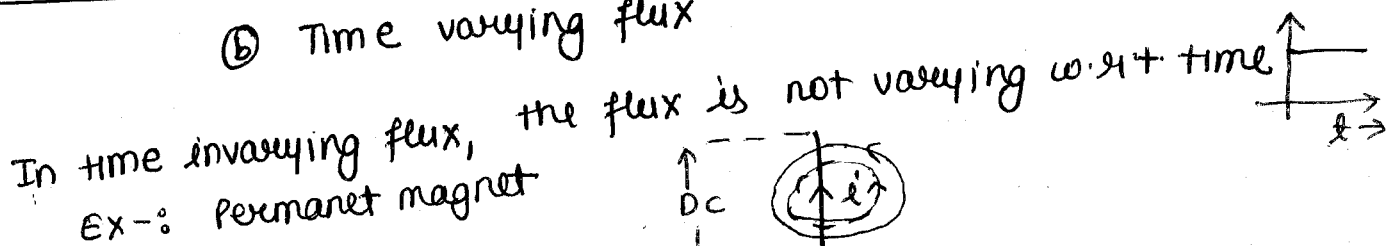 ⓑ Time varying flux
In time invarying flux, the flux is not varying w.r.t. time
t→
Ex-: Permanet magnet
DC
i